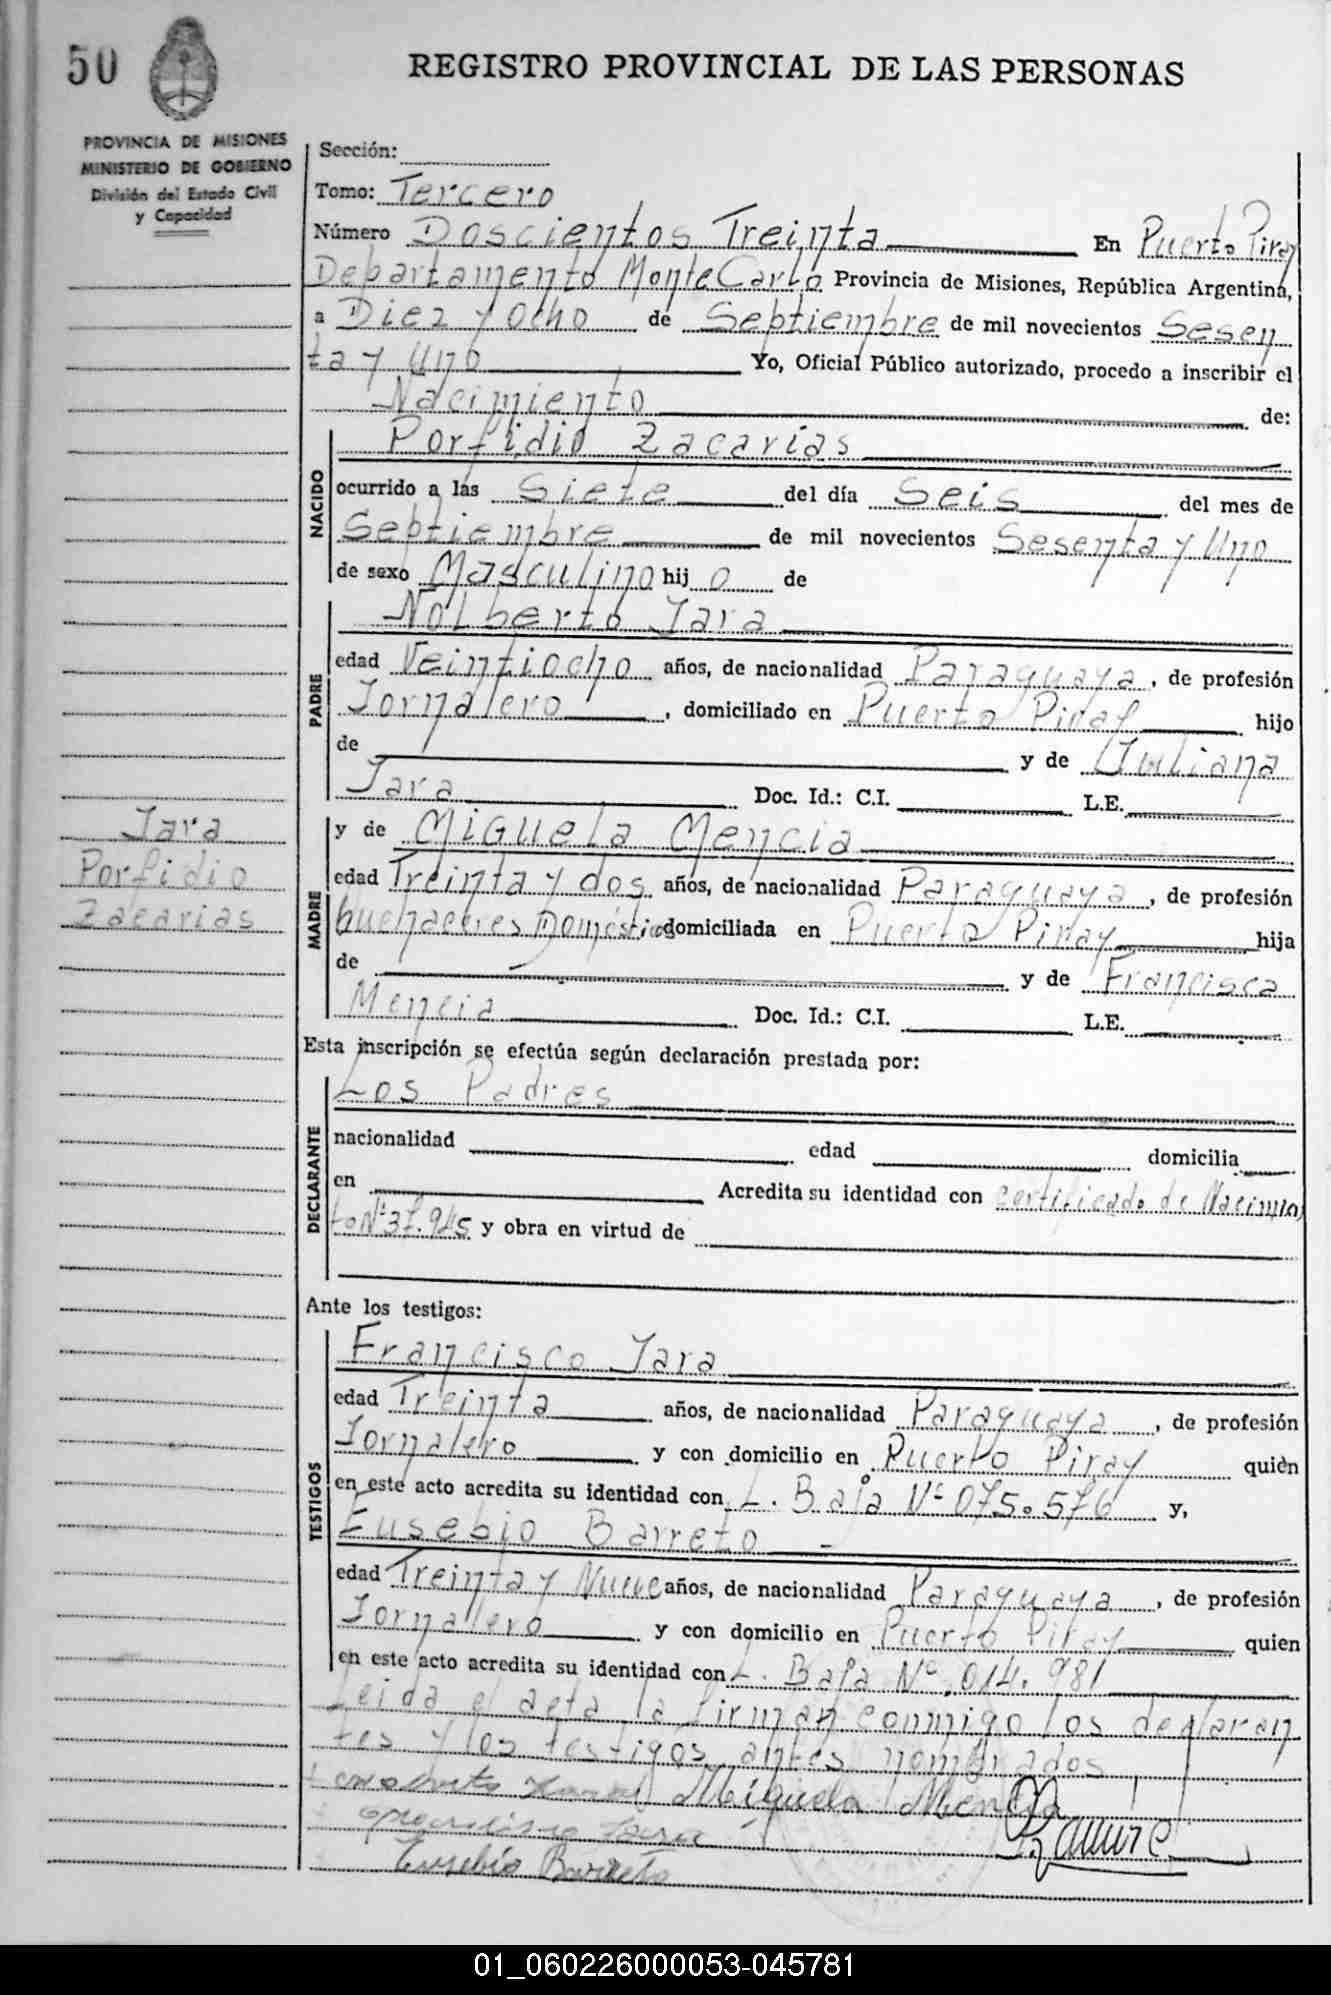 50
REGISTRO PROVINCIAL DE LAS PERSONAS
PROVINCIA DE MISIONES
MINISTERIO DE GOBIERNO
División del Estado Civil
y Capacidad
Sección:
Tomo: Tercero
Número Doscientos Treinta En Puerto Piray
Departamento Monte Carlo Provincia de Misiones, República Argentina,
a Diez y Ocho de Septiembre de mil novecientos Sesen
ta y Uno Yo, Oficial Público autorizado, procedo a inscribir el
Nacimiento de:
Porfidio Zacarias
NACIDO
ocurrido a las Siete del día Seis del mes de
Septiembre de mil novecientos Sesenta y Uno
de sexo Masculino hij o de
Nolberto Jara
PADRE
edad Veintiocho años, de nacionalidad Paraguaya, de profesión
Jornalero, domiciliado en Puerto Piray hijo
de y de Juliana
Jara Doc. Id.: C.I. L.E.
Jara
Porfidio
Zacarias
y de Miguela Mencia
MADRE
edad Treinta y dos años, de nacionalidad Paraguaya, de profesión
quehaceres Domésticos domiciliada en Puerto Piray hija
de y de Francisca
Mencia Doc. Id.: C.I. L.E.
Esta inscripción se efectúa según declaración prestada por:
Los Padres
DECLARANTE
nacionalidad edad domicilia
en Acredita su identidad con Certificado de Nacimien
to Nº 37.945 y obra en virtud de
Ante los testigos:
Francisco Jara
TESTIGOS
edad Treinta años, de nacionalidad Paraguaya, de profesión
Jornalero y con domicilio en Puerto Piray quién
en este acto acredita su identidad con L. Baja Nº 075.576 y,
Eusebio Barreto
edad Treinta y Nueve años, de nacionalidad Paraguaya, de profesión
Jornalero y con domicilio en Puerto Piray quien
en este acto acredita su identidad con L. Baja Nº 014.981
Leida el acta la firman conmigo los declaran
tes y los testigos antes nombrados
Miguela Mencia
Eusebio Barreto
01_060226000053-045781